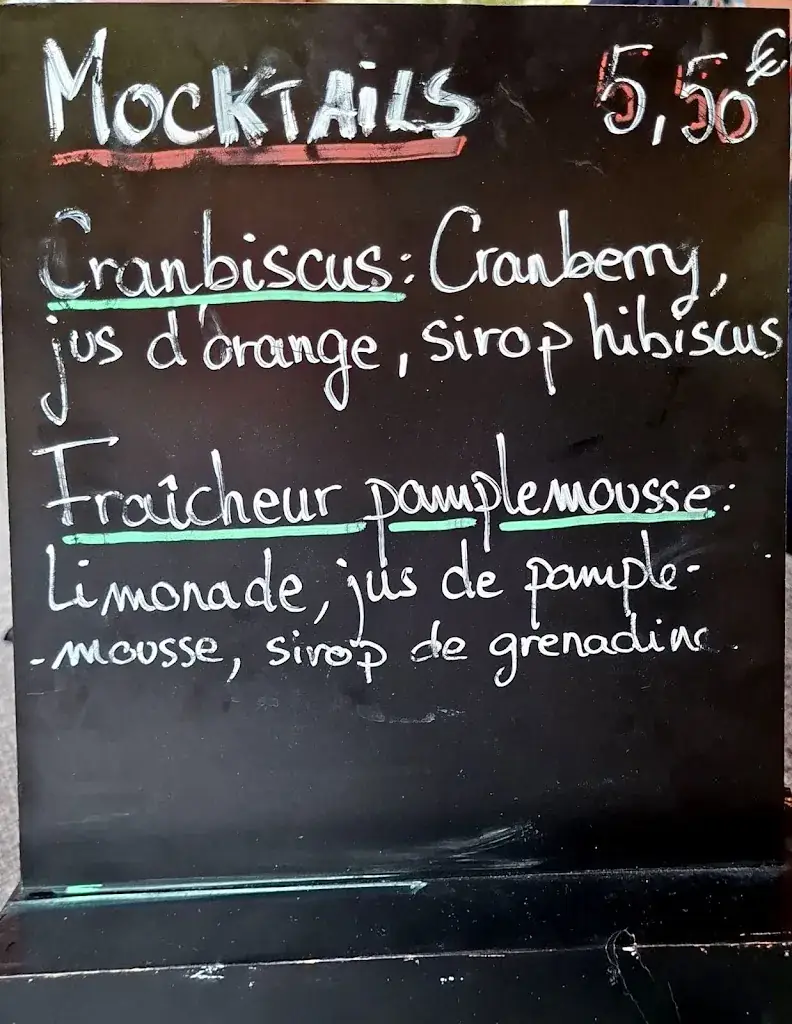 MOCKTAiLS 5,50€
Cranbiscus: Cranberry,
jus d'orange, sirop hibiscus
Fraîcheur pamplemousse:
Limonade, jus de pample-
-mousse, sirop de grenadine.